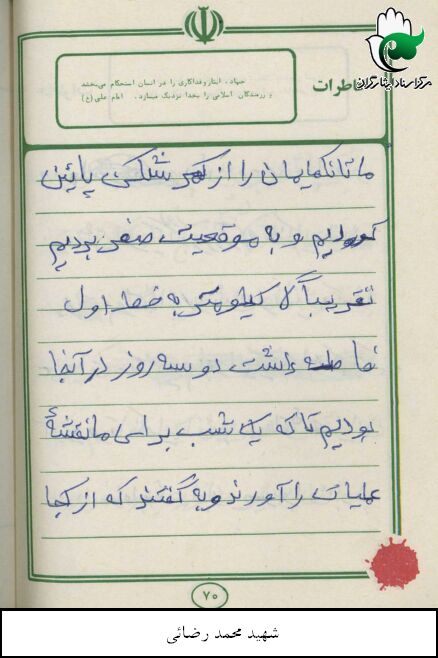 مرکز اسناد ایثارگران
خاطرات
جهاد، ایثار و فداکاری را در انسان استحکام می‌بخشد
و رزمندگان اسلامی را بخدا نزدیک میسازد. امام علی (ع)
ما تانکهایمان را از کمر شکن پایین
کوردیم و به موقعیت صفر بردیم
تقریباً ۷ کیلومتر به خط اول
فاصله داشت دو سه روز در آنجا
بودیم تا که یک شب برای ما نقشهٔ
عملیات را آوردند و به گفتند که از کجا
۷۰
شهید محمد رضائی